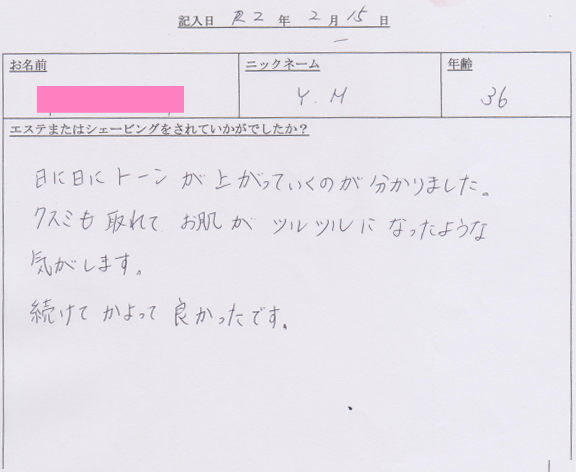 記入日 R2 年 2 月 15 日
お名前 ニックネーム 年齢
Y.M 36
エステまたはシェービングをされていかがでしたか?
日に日にトーンが上がっていくのが分かりました。
クスミも取れてお肌がツルツルになったような
気がします。
続けてかよって良かったです。